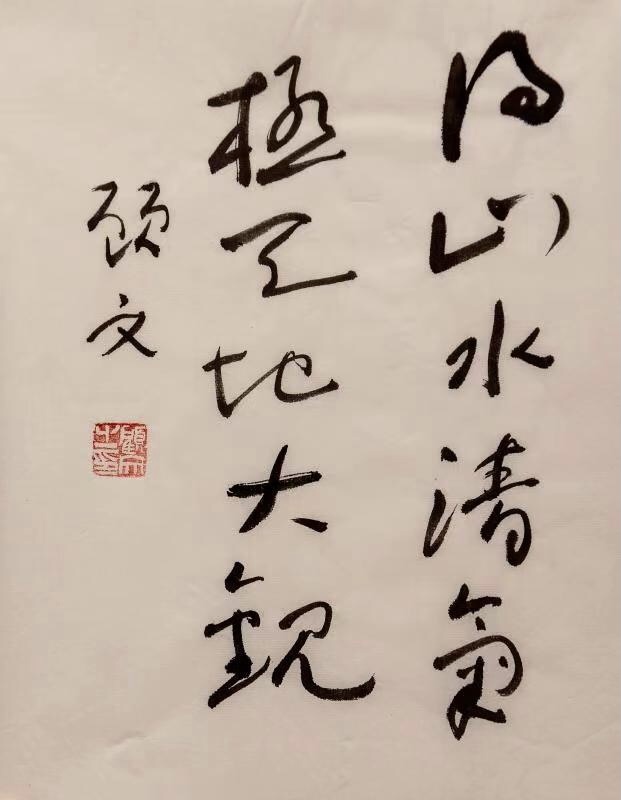 得山水清氣
極天地大觀
顾文